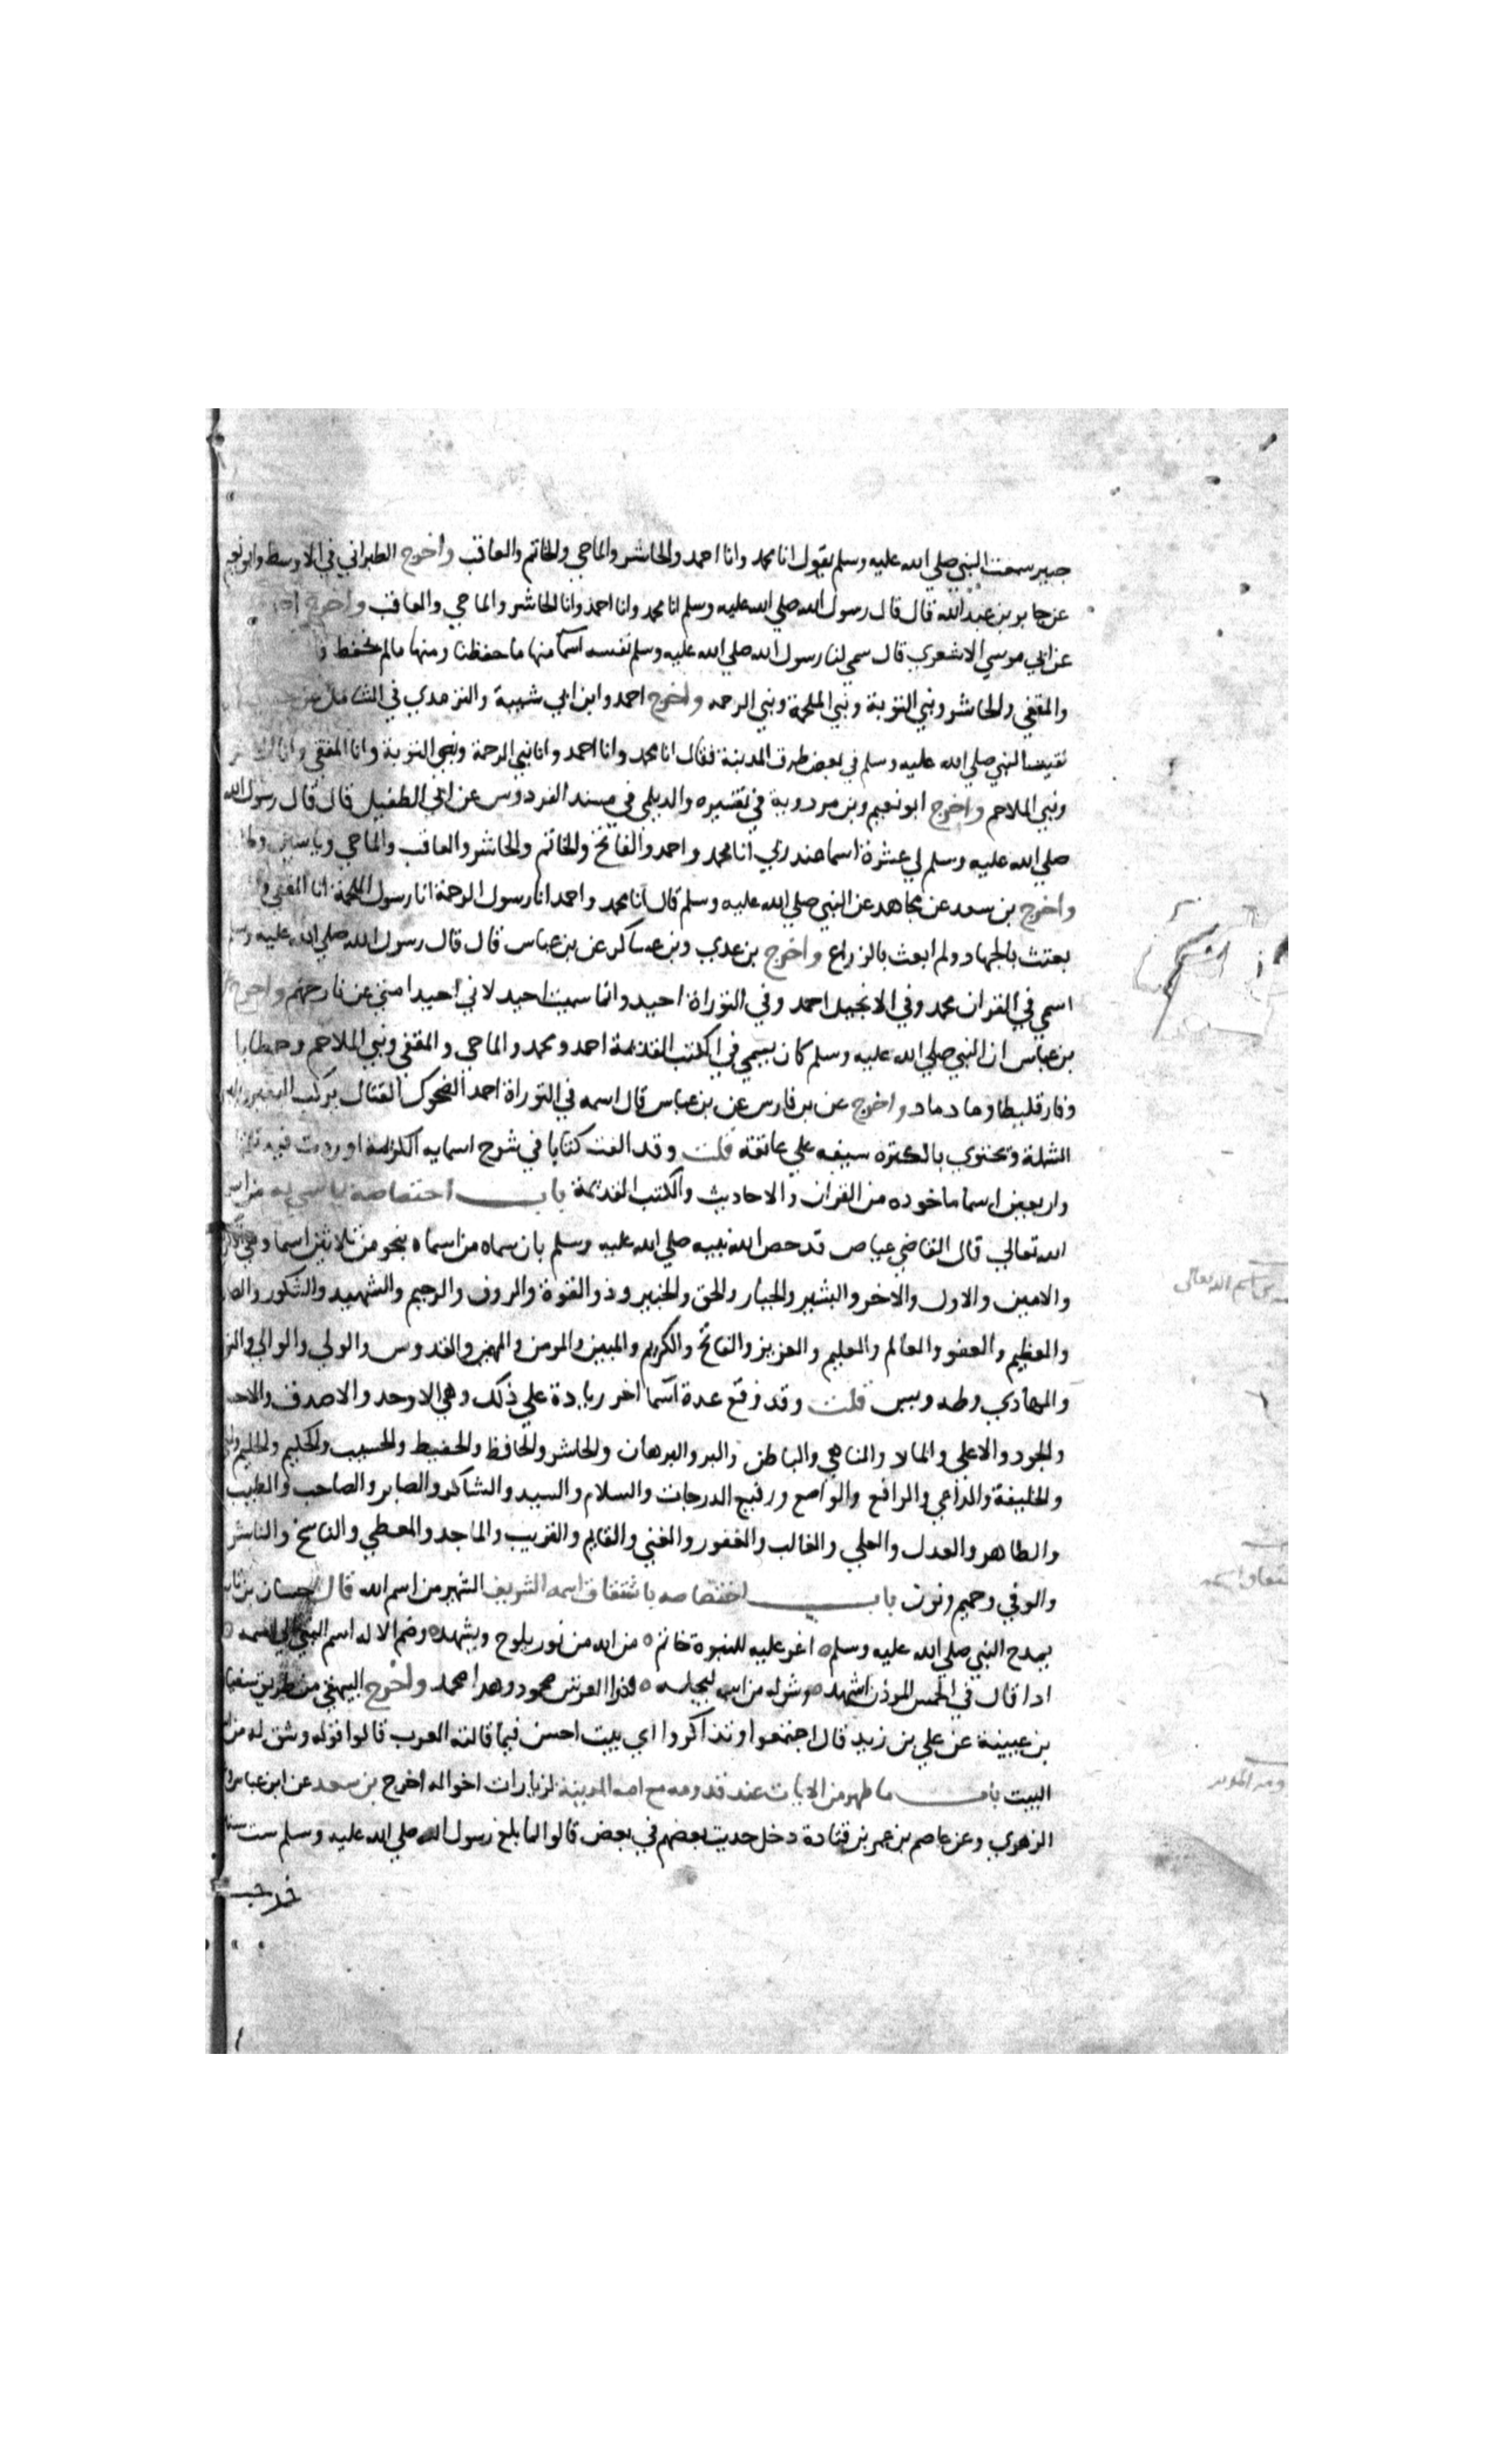 جبير سمعت النبي صلي الله عليه وسلم يقول انا محمد وانا احمد والحاشر والماحي والخاتم والعاقب واخرج الطبراني في الاوسط وابو نعيم
عن جابر بن عبد الله قال قال رسول الله صلي الله عليه وسلم انا محمد وانا احمد وانا الحاشر والماحي والعاقب واخرج
عن ابي موسي الاشعري قال سمي لنا رسول الله صلي الله عليه وسلم نفسه اسما منها ما حفظنا ومنها مالم نحفظ
والمقفي والحاشر ونبي التوبة ونبي الملحمة ونبي الرحمه واخرج احمد وابن ابي شيبة والترمذي في الشمايل عن
لقيت النبي صلي الله عليه وسلم في بعض طرق المدينة فقال انا محمد وانا احمد وانا نبي الرحمة ونبي التوبة وانا المقفي وانا
ونبي الملاحم واخرج ابو نعيم وبن مردوية في تفسيره والديلمي في مسند الفردوس عن ابي الطفيل قال قال رسول الله
صلي الله عليه وسلم لي عشرة اسما عند ربي انا محمد واحمد والفاتح والخاتم والحاشر والعاقب والماحي وياسين وطه
واخرج بن سعد عن مجاهد عن النبي صلي الله عليه وسلم قال انا محمد واحمد انا رسول الرحمة انا رسول الملحمة انا المقفي و
بعثت بالجهاد ولم ابعث بالزراع واخرج بن عدي وبن عساكر عن بن عباس قال قال رسول الله صلي الله عليه وسلم
اسمي في القران محمد وفي الانجيل احمد وفي التوراة احيد وانما سميت احيد لاني احيد امتي عن نار جهنم واخرج
بن عباس ان النبي صلي الله عليه وسلم كان يسمي في الكتب القديمة احمد ومحمد والماحي والمقفي ونبي الملاحم وحمطايا
وفارقليطا وماد ماد واخرج عن بن فارس عن بن عباس قال اسمه في التوراة احمد الضحوك القتال يركب البعير
الشملة ويجتزي بالكسرة سيفه علي عاتقة قلت وقد الفت كتابا في شرح اسمايه الكريمة اوردت فيه
واربعين اسما ماخوده من القران والاحاديث والكتب القديمة باب اختصاصه بما سمي به من
الله تعالي قال القاضي عياض قد خص الله نبيه صلي الله عليه وسلم بان سماه من اسماه بنحو من ثلاثين اسما وهي
والامين والاول والاخر والبشير والجبار والحق والخبير وذو القوة والروف والرحيم والشهيد والشكور
والعظيم والعفو والعالم والعليم والعزيز والفاتح والكريم والمبين والمومن والمهيمن والقدوس والولي والوالي
والهادي وطه ويس قلت وقد وقع عدة اسما اخر زيادة علي ذلك وهي الاوحد والاصدق
والجود والاعلي والناهي والباطن والبر والبرهان والحاشر والحافظ والحفيظ والحسيب والحكيم والحليم
والخليفة والداعي والرافع والواضع ورفيع الدرجات والسلام والسيد والشاكر والصابر والصاحب والطيب
والطاهر والعدل والعلي والغالب والغفور والغني والقايم والقريب والماجد والمعطي والناسخ والناشر
والوفي وحميم ونون باب اختصاصه باشتقاق اسمه الشريف الشهير من اسم الله قال حسان بن
يمدح النبي صلي الله عليه وسلم اغر عليه للنبوة خاتم من الله من نور يلوح ويشهد وضم الاله اسم النبي الي اسمه
اذا قال في الخمس الموذن اشهد وشق له من اسمه ليجله فذوا العرش محمود وهذا محمد واخرج البيهقي من طريق سفيان
بن عيينة عن علي بن زيد قال اجتمعوا وتذاكروا اي بيت احسن فيما قالته العرب قالوا قوله وشق له من
البيت باب ما ظهر من الايات عند قدومه مع امه المدينة لزيارات اخواله اخرج بن سعد عن ابن عباس
الزهري وعن عاصم بن عمر بن قتادة دخل حديث بعضهم في بعض قالوا لما بلغ رسول الله صلي الله عليه وسلم ست
خرجت